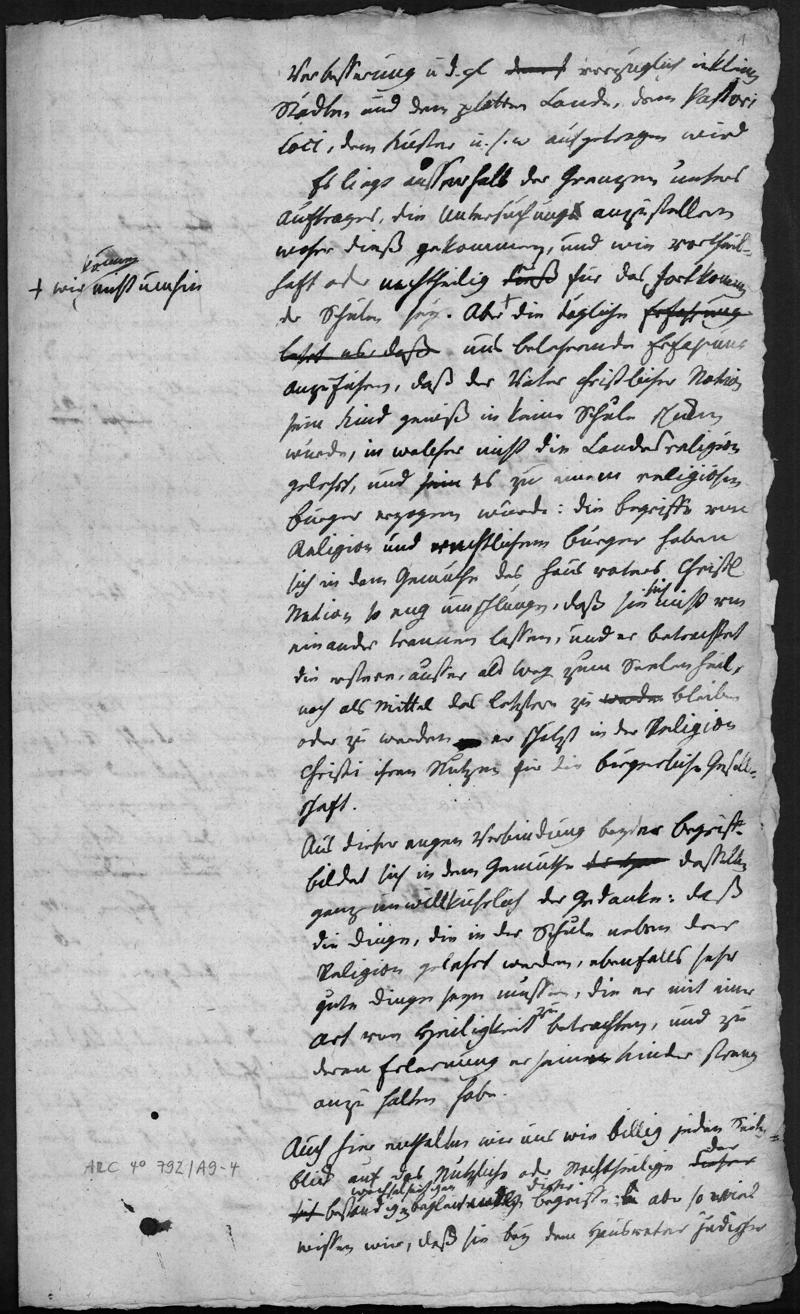 Verbesserung u. d. gl. vorzüglich in kleinen
Städten und dem platten Lande, dem Pastori
Loci, dem Küster u. s. w aufgetragen wird
Es liegt ausserhalb der Grenzen unsers
Auftrages, die Untersuchung anzustellen
woher dieß gekommen, und wie vortheil-
haft oder nachtheilig dieß für das Fortkommen
der Schulen sey. Aber die tägliche Erfahrung
können
+ wir nicht umhin
lehrt es, daß uns belehrende Erfahrung
anzuführen, daß der Vater christlicher Nation
sein Kind gewiß in keine Schule schicken
würde, in welcher nicht die Landesreligion
gelehrt, und es zu einem religiösen
Bürger erzogen würde: die Begriffe von
Religion und rechtlichem Bürger haben
sich in dem Gemüthe des Hausvaters Christl
Nation so eng umschlungen, daß sie sich nicht von
einander trennen lassen, und er betrachtet
die erstere, ausser als Weg zum Seelenheil,
noch als Mittel das letztere zu werden bleiben
oder zu werden er schätzt in der Religion
Christi ihren Nutzen für die bürgerliche Gesell-
schaft.
Aus dieser engen Verbindung beyder Begriffe
bildet sich in dem Gemüthe desselben
ganz unwillkührlich der Gedanke: daß
die Dinge, die in der Schule neben der
Religion gelehrt werden, ebenfalls sehr
gute Dinge seyn müssen, die er mit einer
Art von Heiligkeit zu betrachten, und zu
deren Erlernung er seine Kinder streng
anzuhalten habe.
Auch hier enthalten wir uns wie billig jeden Seiten-
blick auf das Nützliche oder Nachtheilige dieser der
wechselseitigen dieser
beständigen Begriffe: aber so viel
wissen wir, daß sie bey dem Hausvater jüdischer
ARC 4° 792/A9-4